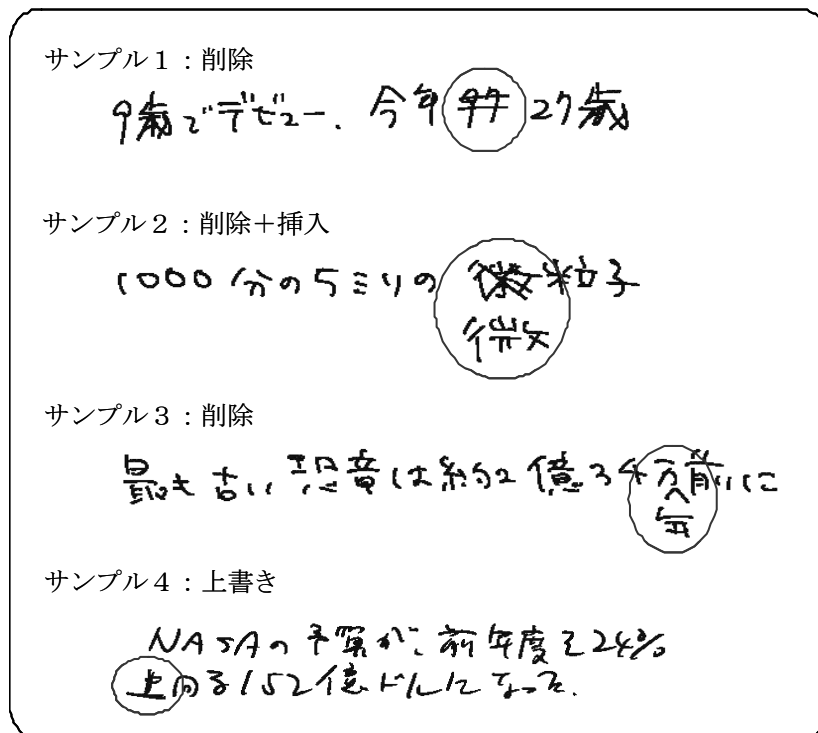 サンプル１：削除
9歳でデビュー、今年 27歳
サンプル２：削除＋挿入
1000分の5ミリの 粒子
微
サンプル３：削除
最も古い恐竜は約2億3千万前に
年
サンプル４：上書き
NASAの予算が、前年度を24%
上回る152億ドルになった.